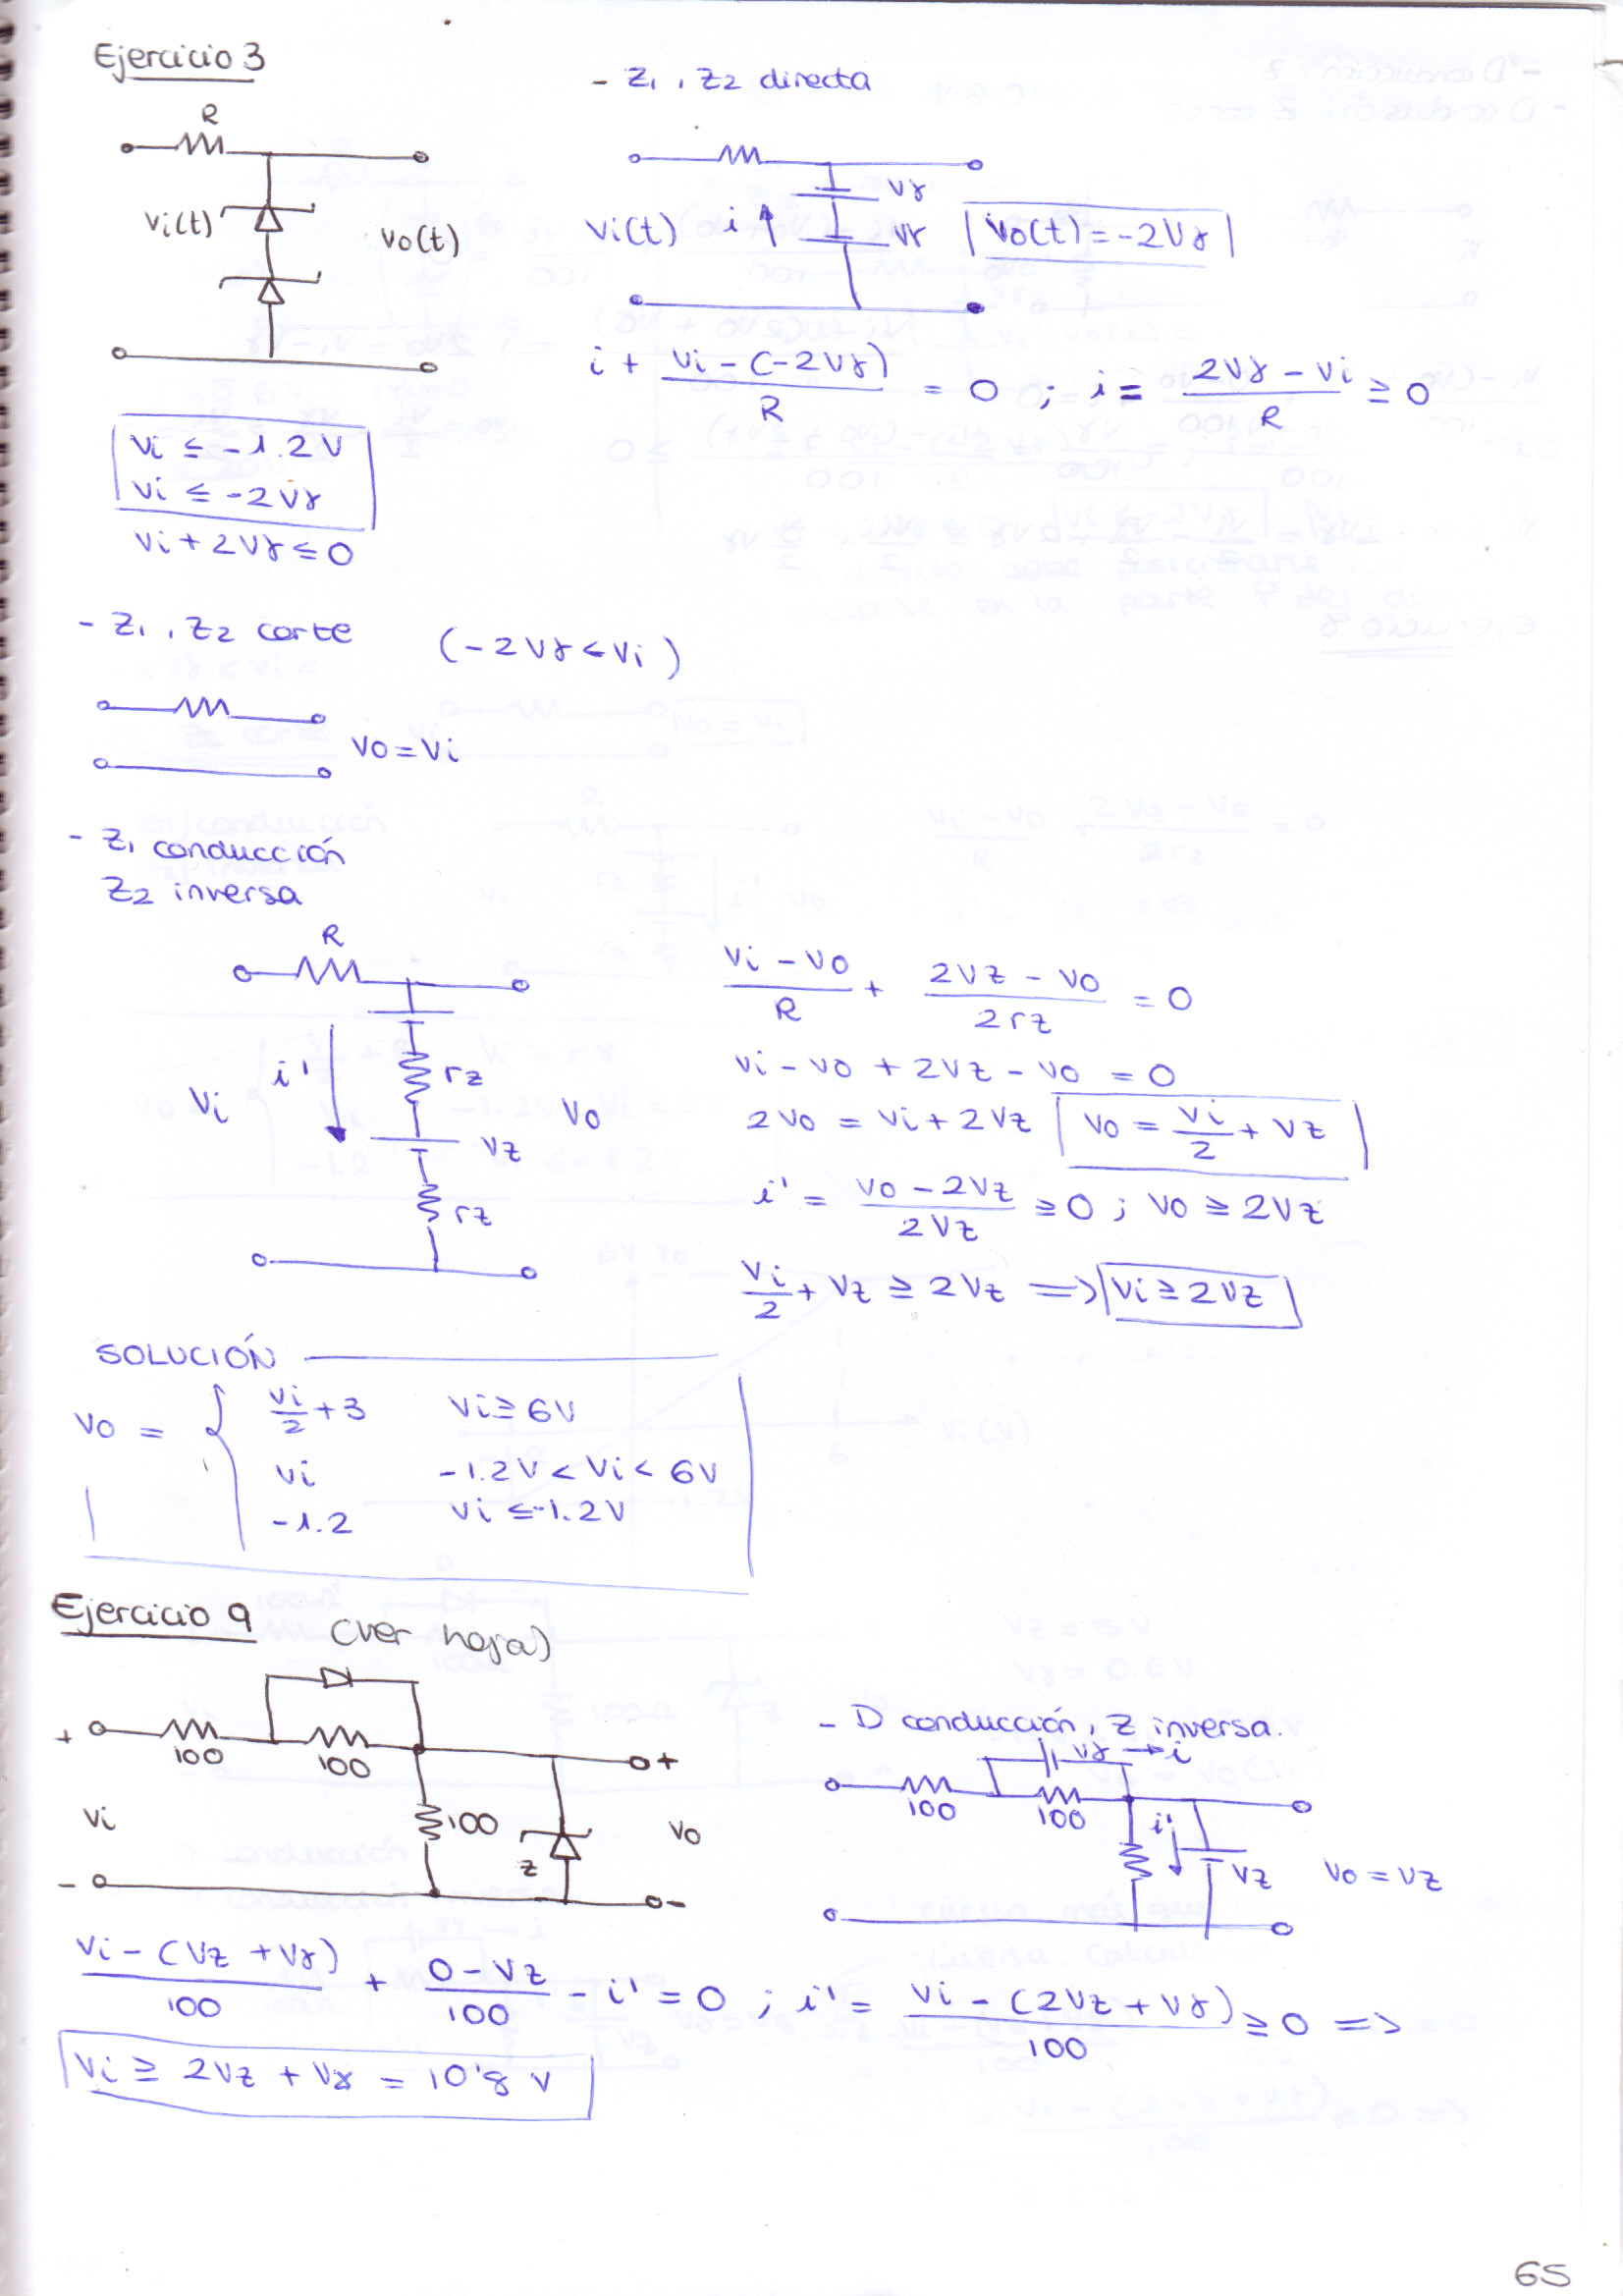 Ejercicio 3
R
Vi(t)
Vo(t)
- Z1, Z2 directa
Vγ
Vi(t) i Vγ Vo(t) = -2Vγ
i + (Vi - (-2Vγ))/R = 0 ; i = (2Vγ - Vi)/R ≥ 0
Vi ≤ -1.2V
Vi ≤ -2Vγ
Vi + 2Vγ ≤ 0
- Z1, Z2 corte (-2Vγ < Vi)
Vo = Vi
- Z1 conducción
Z2 inversa
R
rz
i'
Vi
Vo
Vz
rz
(Vi - Vo)/R + (2Vz - Vo)/2rz = 0
Vi - Vo + 2Vz - Vo = 0
2Vo = Vi + 2Vz Vo = Vi/2 + Vz
i' = (Vo - 2Vz)/2Vz ≥ 0 ; Vo ≥ 2Vz
Vi/2 + Vz ≥ 2Vz => Vi ≥ 2Vz
SOLUCIÓN
Vo = { Vi/2 + 3 Vi ≥ 6V
Vi -1.2V < Vi < 6V
-1.2 Vi ≤ -1.2V
Ejercicio 9 (ver hoja)
+ 100 100 +
Vi 100 Z Vo
- -
- D conducción, Z inversa.
Vγ → i
100 100
i' Vz Vo = Vz
(Vi - (Vz + Vγ))/100 + (0 - Vz)/100 - i' = 0 ; i' = (Vi - (2Vz + Vγ))/100 ≥ 0 =>
Vi ≥ 2Vz + Vγ = 10'8 V
65